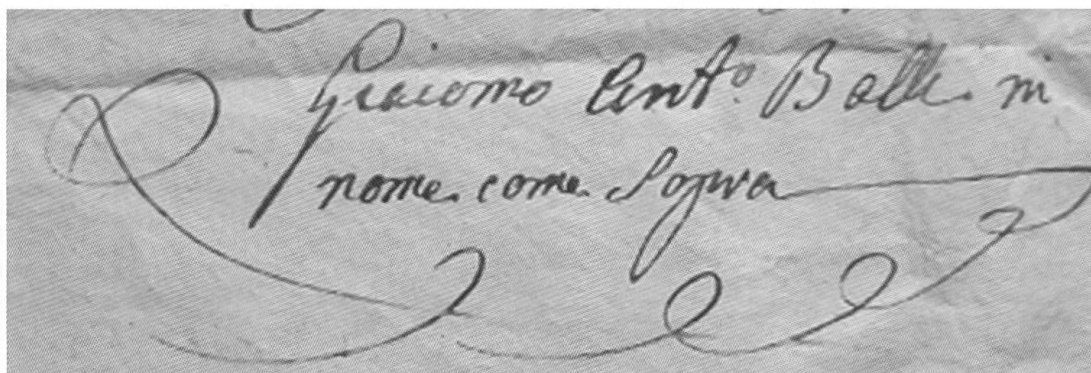 Giacomo Ant.º Balli. ni
nome. come. Sopra